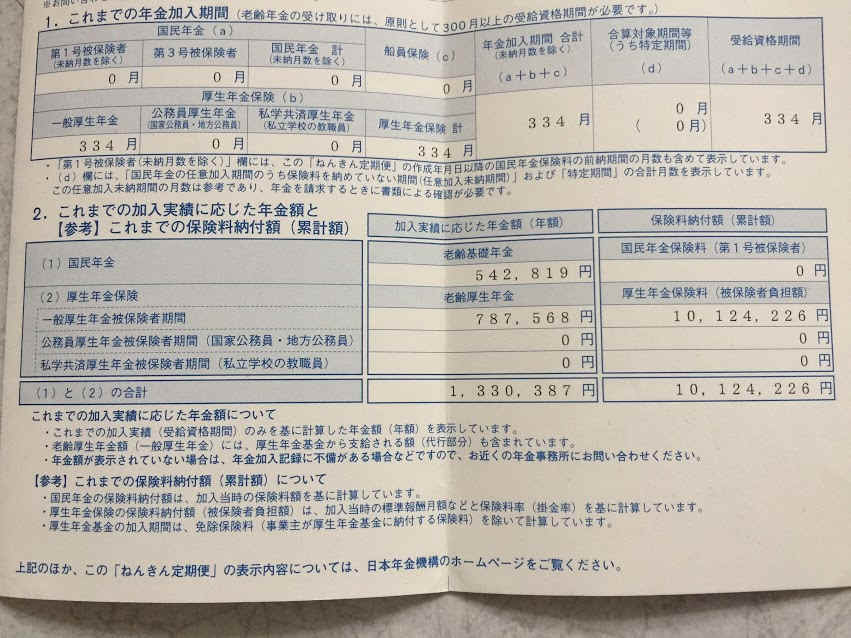 ※お問い合わ
1．これまでの年金加入期間（老齢年金の受け取りには、原則として300月以上の受給資格期間が必要です。）
国民年金（a）
第1号被保険者
（未納月数を除く）
第3号被保険者
国民年金 計
（未納月数を除く）
船員保険（c）
年金加入期間 合計
（未納月数を除く）
（a＋b＋c）
合算対象期間等
（うち特定期間）
（d）
受給資格期間
（a＋b＋c＋d）
0 月
0 月
0 月
0 月
厚生年金保険（b）
一般厚生年金
公務員厚生年金
（国家公務員・地方公務員）
私学共済厚生年金
（私立学校の教職員）
厚生年金保険 計
334 月
0 月
（ 0月）
334 月
334 月
0 月
0 月
334 月
・「第1号被保険者（未納月数を除く）」欄には、この「ねんきん定期便」の作成年月日以降の国民年金保険料の前納期間の月数も含めて表示しています。
・（d）欄には、「国民年金の任意加入期間のうち保険料を納めていない期間（任意加入未納期間）」および「特定期間」の合計月数を表示しています。
この任意加入未納期間の月数は参考であり、年金を請求するときに書類による確認が必要です。
2．これまでの加入実績に応じた年金額と
【参考】これまでの保険料納付額（累計額）
加入実績に応じた年金額（年額）
保険料納付額（累計額）
（1）国民年金
老齢基礎年金
542，819 円
国民年金保険料（第1号被保険者）
0 円
（2）厚生年金保険
老齢厚生年金
厚生年金保険料（被保険者負担額）
一般厚生年金被保険者期間
787，568 円
10，124，226 円
公務員厚生年金被保険者期間（国家公務員・地方公務員）
0 円
0 円
私学共済厚生年金被保険者期間（私立学校の教職員）
0 円
0 円
（1）と（2）の合計
1，330，387 円
10，124，226 円
これまでの加入実績に応じた年金額について
・これまでの加入実績（受給資格期間）のみを基に計算した年金額（年額）を表示しています。
・老齢厚生年金額（一般厚生年金）には、厚生年金基金から支給される額（代行部分）も含まれています。
・年金額が表示されていない場合は、年金加入記録に不備がある場合などですので、お近くの年金事務所にお問い合わせください。
【参考】これまでの保険料納付額（累計額）について
・国民年金の保険料納付額は、加入当時の保険料額を基に計算しています。
・厚生年金保険の保険料納付額（被保険者負担額）は、加入当時の標準報酬月額などと保険料率（掛金率）を基に計算しています。
・厚生年金基金の加入期間は、免除保険料（事業主が厚生年金基金に納付する保険料）を除いて計算しています。
上記のほか、この「ねんきん定期便」の表示内容については、日本年金機構のホームページをご覧ください。